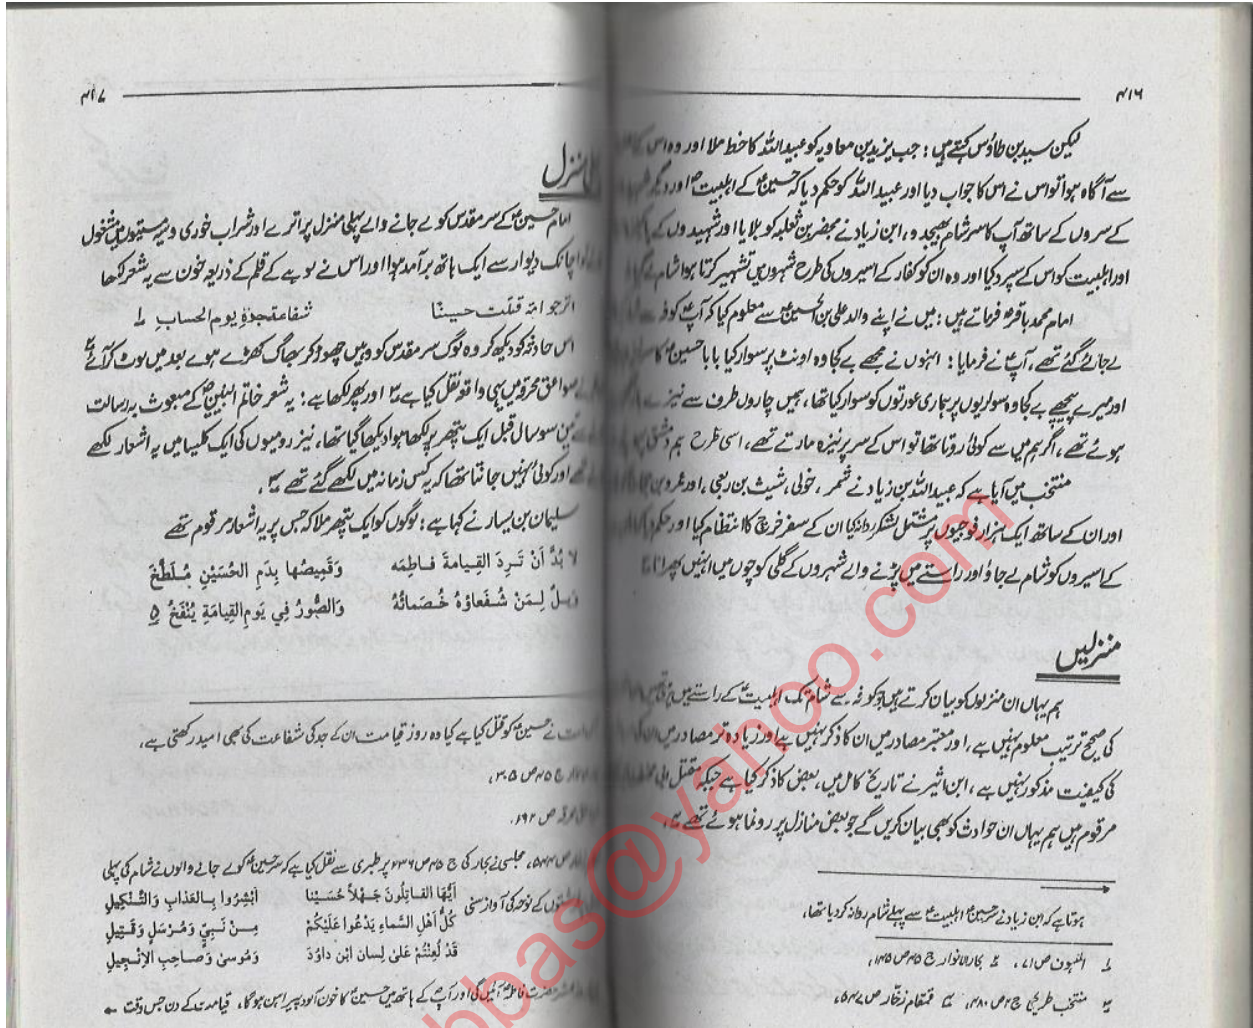 ۴۱۶
لیکن سید بن طاؤس کہتے ہیں: جب یزید بن معاویہ کو عبید اللہ کا خط ملا اور وہ اس کے
سے آگاہ ہوا تو اس نے اس کا جواب دیا اور عبید اللہ کو حکم دیا کہ حسینؑ کے اہلبیتؑ اور دیگر
کے سروں کے ساتھ آپ کا سر شام بھیجدو، ابن زیاد نے محضر بن ثعلبہ کو بلایا اور شہیدوں کے
اور اہلبیت کو اس کے سپرد کیا اور وہ ان کو کفار کے اسیروں کی طرح شہروں میں تشہیر کرتا ہوا شام لے گیا
امام محمد باقرؑ فرماتے ہیں: میں نے اپنے والد علی بن الحسینؑ سے معلوم کیا کہ آپؑ کوفہ سے
لے جائے گئے تھے، آپؑ نے فرمایا: انہوں نے مجھے بے کجاوہ اونٹ پر سوار کیا بابا حسینؑ کا سر
اور میرے پیچھے بے کجاوہ سواریوں پر ہماری عورتوں کو سوار کیا تھا، ہمیں چاروں طرف سے نیزے
ہوئے تھے، اگر ہم میں سے کوئی روتا تھا تو اس کے سر پر نیزہ مارتے تھے، اسی طرح ہم دمشق
منتخب میں آیا ہے کہ عبید اللہ بن زیاد نے شمر، خولی، شبث بن ربعی، اور عمرو بن
اور ان کے ساتھ ایک ہزار فوجیوں پر مشتمل لشکر روانہ کیا ان کے سفر خرچ کا انتظام کیا اور حکم
کے اسیروں کو شام لے جاؤ اور راستے میں پڑنے والے شہروں کے گلی کوچوں میں انہیں پھراؤ
منزلیں
ہم یہاں ان منزلوں کو بیان کرتے ہیں جو کوفہ سے شام تک اہلبیتؑ کے راستے میں
کی صحیح ترتیب معلوم نہیں ہے، اور معتبر مصادر میں ان کا ذکر نہیں ہے اور زیادہ تر مصادر میں ان
کی کیفیت مذکور نہیں ہے، ابن اثیر نے تاریخ کامل میں، بعض کا ذکر کیا ہے جبکہ مقتل ابی مخنف
مرقوم ہیں ہم یہاں ان حوادث کو بھی بیان کریں گے جو بعض منازل پر رونما ہوئے تھے
ہوتا ہے کہ ابن زیاد نے سر حسینؑ اہلبیتؑ سے پہلے شام روانہ کر دیا تھا۔
۱ اللہوف ص ۷۱، ۲ بحار الانوار ج ۴۵ ص ۱۴۵،
۳ منتخب طریحی ج ۲ ص ۴۸۰، ۴ قمقام زخّار ص ۵۴۷،
۴۱۷
منزل
امام حسینؑ کے سر مقدس کو لے جانے والے پہلی منزل پر اترے اور شراب خوری و سرمستیوں میں مشغول
اچانک دیوار سے ایک ہاتھ برآمد ہوا اور اس نے لوہے کے قلم کے ذریعہ خون سے یہ شعر لکھا
اترجو امة قتلت حسينا شفاعة جده يوم الحساب ۱
اس حادثہ کو دیکھ کر وہ لوگ سر مقدس کو وہیں چھوڑ کر بھاگ کھڑے ہوے بعد میں لوٹ کر آئے ۲
صواعق محرقہ میں یہی واقعہ نقل کیا ہے ۳ اور پھر لکھا ہے: یہ شعر خاتم النبیینؐ کے مبعوث بہ رسالت
تین سو سال قبل ایک پتھر پر لکھا ہوا دیکھا گیا تھا، نیز رومیوں کی ایک کلیسا میں یہ اشعار لکھے
اور کوئی نہیں جانتا تھا کہ یہ کس زمانہ میں لکھے گئے تھے ۴،
سلیمان بن یسار نے کہا ہے: لوگوں کو ایک پتھر ملا کہ جس پر یہ اشعار مرقوم تھے
لا بُدَّ أنْ تَرِدَ القِيامَةَ فاطِمَه وَقَمِيصُها بِدَمِ الحُسَيْنِ مُلَطَّخُ
وَيلٌ لِمَنْ شُفَعاؤهُ خُصَمائُهُ وَالصُّورُ فِي يَومِ القِيامَةِ يُنْفَخُ ۵
نے حسینؑ کو قتل کیا ہے کیا وہ روز قیامت ان کے جد کی شفاعت کی بھی امید رکھتی ہے،
ج ۴۵ ص ۳۰۵،
محرقہ ص ۱۹۲،
ص ۵۴۴، مجلسی نے بحار کی ج ۴۵ ص ۲۳۶ پر طبری سے نقل کیا ہے کہ سر حسینؑ کو لے جانے والوں نے شام کی پہلی
کے نوحہ کی آواز سنی
أَيُّهَا القاتِلُونَ جَهْلاً حُسَيْنا اَبْشِرُوا بِالعَذابِ وَالتَّنْكِيلِ
كُلُّ اَهْلِ السَّماءِ يَدْعُوا عَلَيْكُمْ مِنْ نَبِيٍّ وَمُرْسَلٍ وَقَتِيلِ
قَدْ لُعِنْتُمْ عَلى لِسانِ ابْنِ داوُدَ وَمُوسى وَصاحِبِ الاِنْجِيلِ
حضرت فاطمہؑ آئیں گی اور آپؑ کے ہاتھ میں حسینؑ کا خون آلود پیراہن ہوگا، قیامت کے دن جس وقت
bbas@yahoo.com